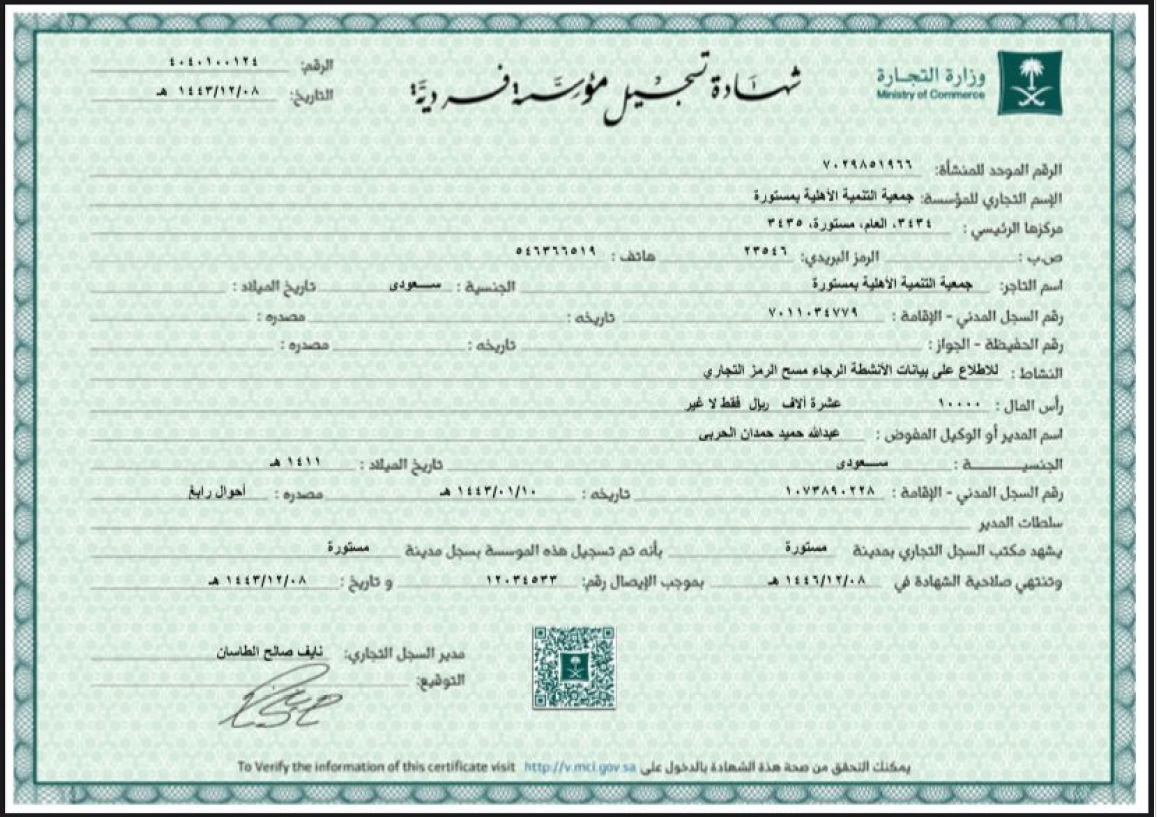 وزارة التجارة
Ministry of Commerce
شهادة تسجيل مؤسسة فردية
الرقم: ٤٠٤٠١٠٠١٢٤
التاريخ: ١٤٤٣/١٢/٠٨ هـ
الرقم الموحد للمنشأة: ٧٠٢٩٨٥١٩٦٦
الإسم التجاري للمؤسسة: جمعية التنمية الأهلية بمستورة
مركزها الرئيسي : ٣٤٣٤، العام، مستورة، ٣٤٣٥
ص.ب : الرمز البريدي: ٢٣٥٤٦ هاتف : ٠٥٤٦٣٦٦٥١٩
اسم التاجر: جمعية التنمية الأهلية بمستورة الجنسية : سعودى تاريخ الميلاد :
رقم السجل المدني - الإقامة : ٧٠١١٠٣٤٧٧٩ تاريخه : مصدره :
رقم الحفيظة - الجواز : تاريخه : مصدره :
النشاط : للاطلاع على بيانات الأنشطة الرجاء مسح الرمز التجاري
رأس المال : ١٠٠٠٠ عشرة آلاف ريال فقط لا غير
اسم المدير أو الوكيل المفوض : عبدالله حميد حمدان الحربى
الجنسيـــــة : سعودى تاريخ الميلاد : ١٤١١ هـ
رقم السجل المدني - الإقامة : ١٠٧٣٨٩٠٢٢٨ تاريخه : ١٤٤٣/٠١/١٠ هـ مصدره : أحوال رابغ
سلطات المدير
يشهد مكتب السجل التجاري بمدينة مستورة بأنه تم تسجيل هذه الموسسة بسجل مدينة مستورة
وتنتهي صلاحية الشهادة في ١٤٤٦/١٢/٠٨ هـ بموجب الإيصال رقم: ١٢٠٣٤٥٣٣ و تاريخ : ١٤٤٣/١٢/٠٨ هـ
مدير السجل التجاري: نايف صالح الطاسان
التوقيع:
يمكنك التحقق من صحة هذة الشهادة بالدخول على http://v.mci.gov.sa To Verify the information of this certificate visit